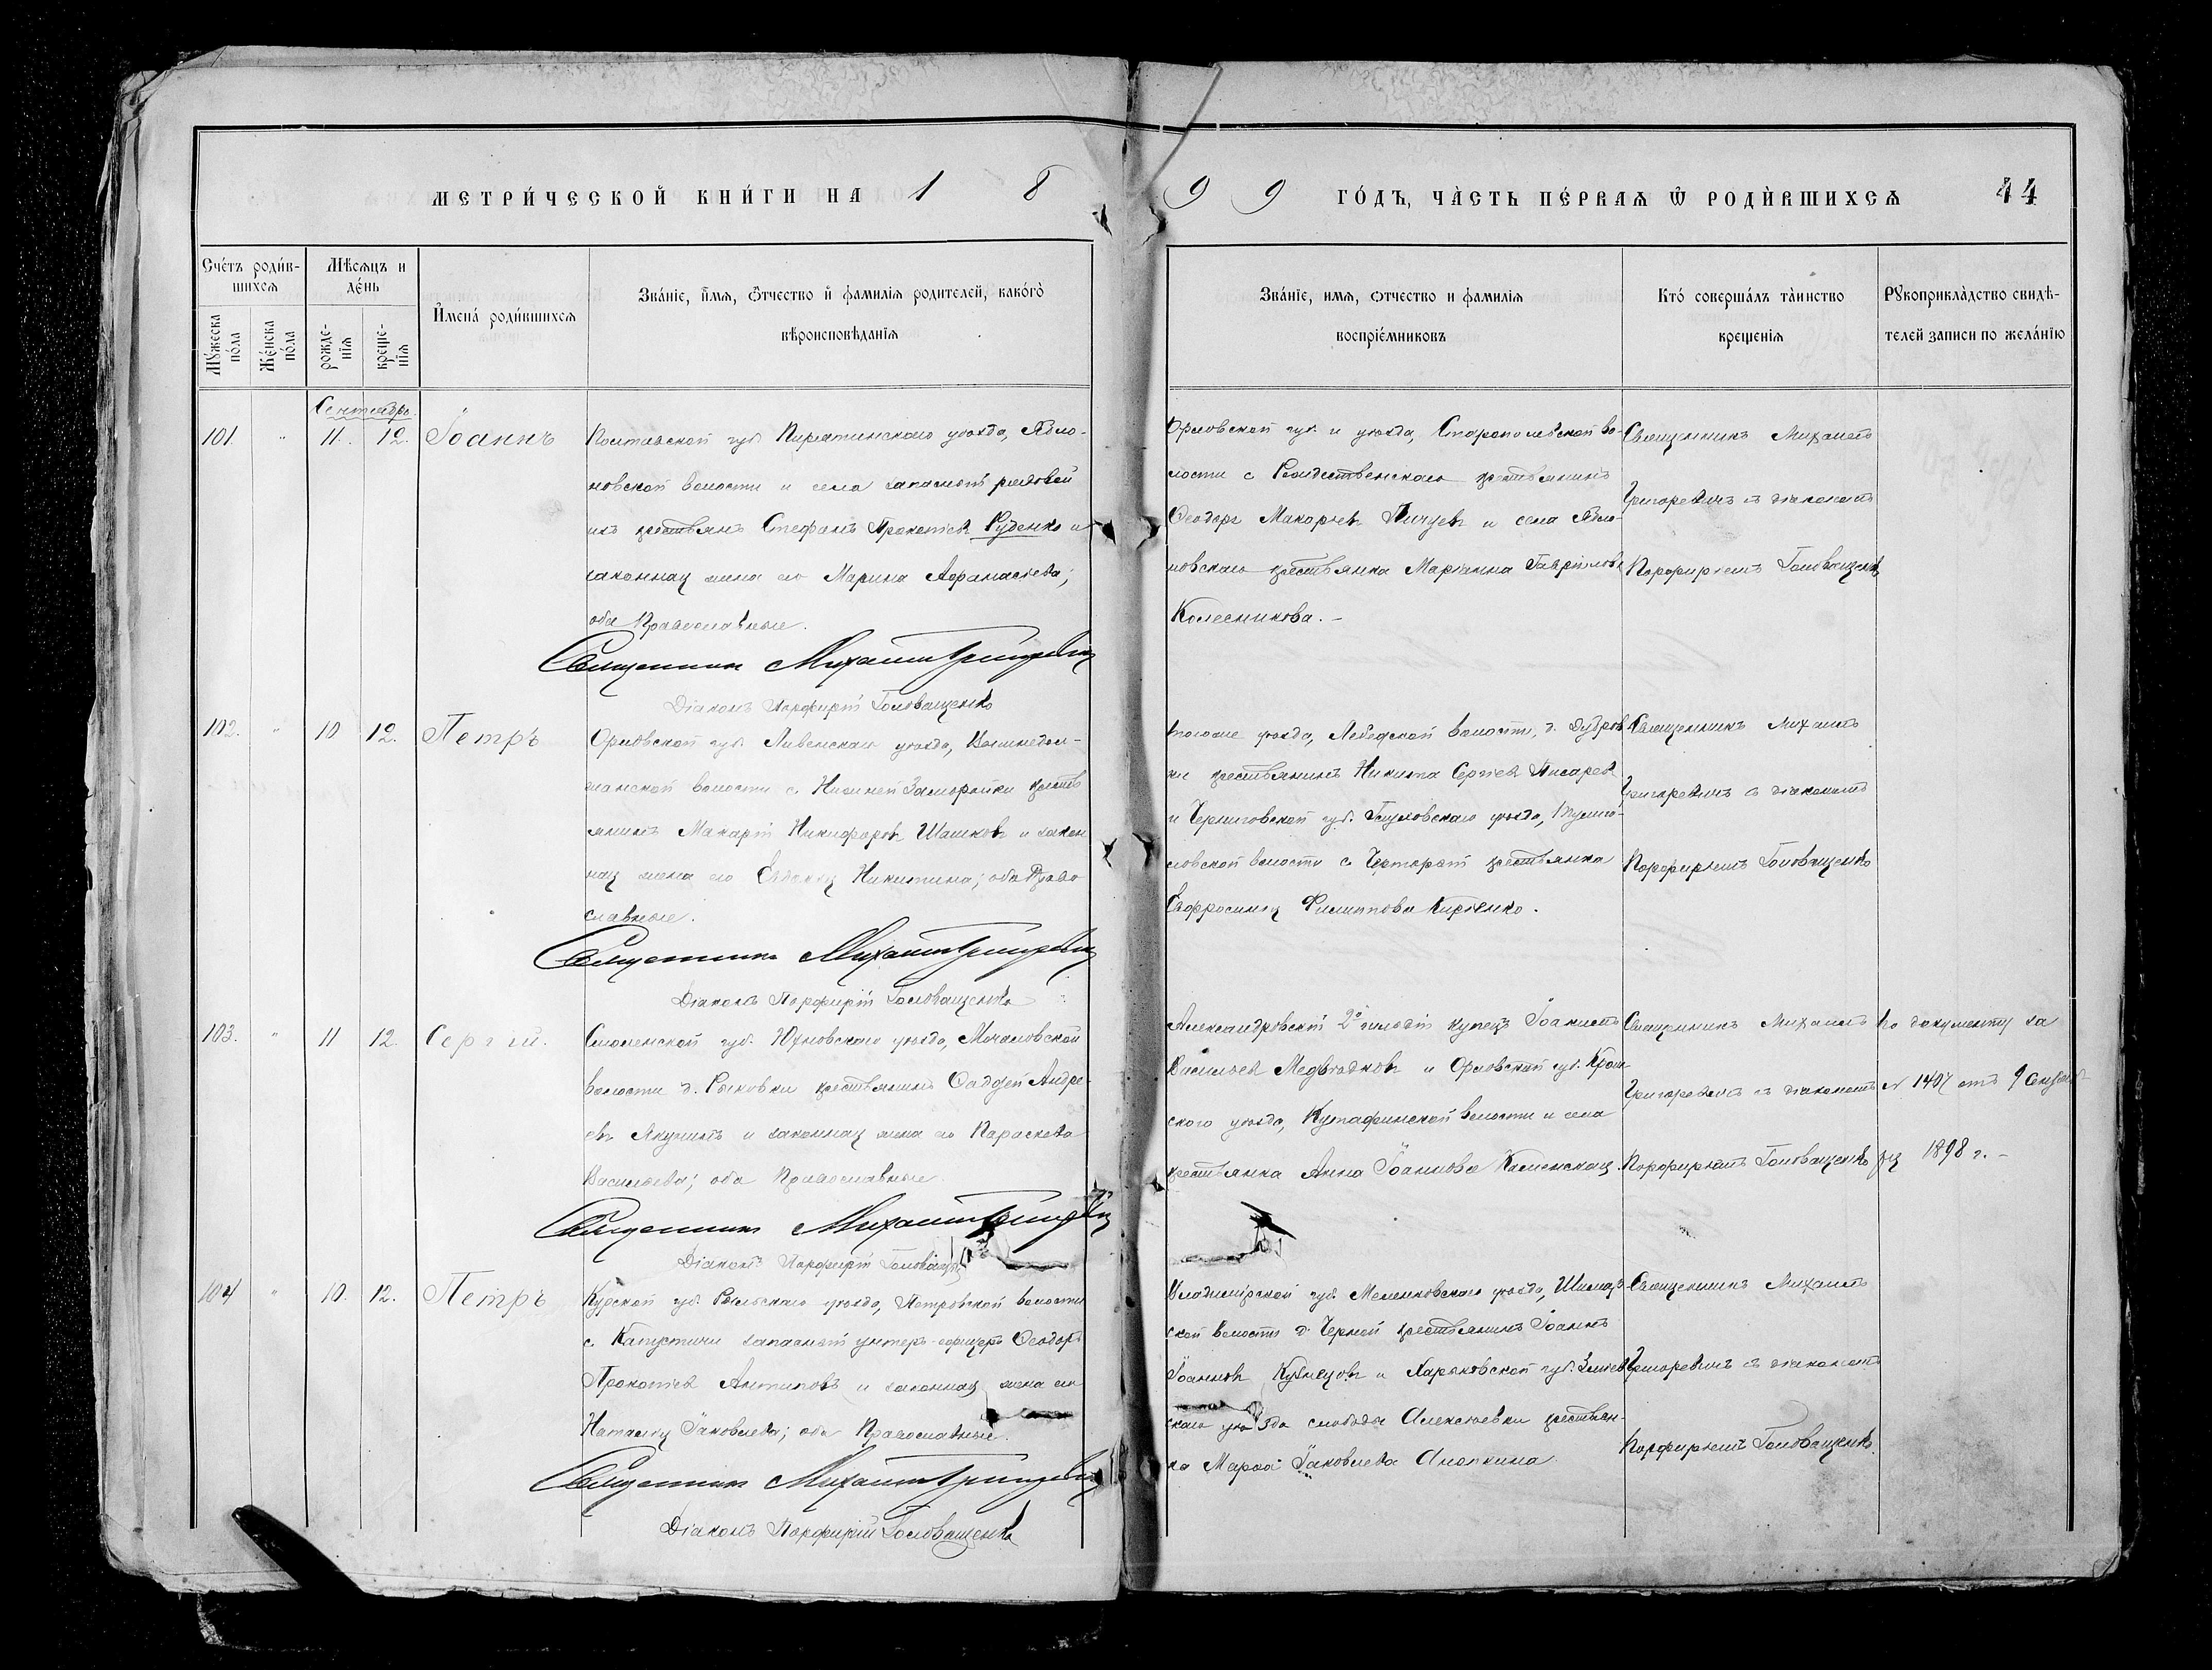 МЕТРИ́ЧЕСКОЙ КНИ́ГИ НА 1 8 9 9 ГО́ДЪ, ЧА́СТЬ ПЕ́РВАѦ Ѿ РОДИ́ВШИХСѦ 44
Сче́тъ роди́в-
шихсѧ
Мꙋ́жеска по́ла
Же́нска по́ла
Мѣ́сѧцъ и
де́нь
рожде-
нїѧ
креще-
нїѧ
И҆мена́ роди́вшихсѧ
Зва́нїе, и҆́мѧ, ѻ҆́тчество и҆ фамилїѧ родителей, како́гѡ
вѣроисповѣданїѧ
Зва́нїе, имѧ, ѻтчество и фамилїѧ
воспрїе́мниковъ
Кто́ соверша́лъ та́инство
креще́нїѧ
Рꙋкоприкла́дство свидѣ-
телей записи по жела́нїю
Сентябрь.
101. " 11. 12. Іоаннъ
Полтавской губ. Пирятинскаго уѣзда, Ябло-
новской волости и села запасный рядовой
изъ крестьянъ Стефанъ Прокопіевъ Руденко и
законная жена его Марина Аѳанасіева;
оба Православные.
Священникъ Михаилъ Григоревичъ
Діаконъ Порфирій Головащенко
Орловской губ. и уѣзда, во-
лости с. Рождественскаго крестьянинъ
Ѳеодоръ Макаріевъ и села Ябло-
новскаго крестьянка Маріанна Гавріилова
Колесникова. -
Священникъ Михаилъ
Григоревичъ съ діакономъ
Порфиріемъ Головащенко
102. " 10 12. Петръ
Орловской губ. Ливенскаго уѣзда,
волости с. Нижней крестья
янинъ Макарій Никифоровъ Шашковъ и закон
ная жена его Евдокія Никитина; оба Право
славные.
Священникъ Михаилъ Григоревичъ
Діаконъ Порфирій Головащенко
уѣзда, волости, д. Дубров
ки крестьянинъ Никита Сергіевъ Писаревъ
и Черниговской губ. Глуховскаго уѣзда, Тулиго-
ловской волости с. крестьянка
Евфросинія Филиппова Киріенко.
Священникъ Михаилъ
Григоревичъ съ діакономъ
Порфиріемъ Головащенко
103. " 11 12. Сергій.
Смоленской губ. Юхновскаго уѣзда, Мочаловской
волости д. Рыковки крестьянинъ Ѳаддей Андре-
евъ Якунинъ и законная жена его Параскева
Васильева; оба Православные.
Священникъ Михаилъ Григоревичъ
Діаконъ Порфирій
Александровскій 2й гильдіи купецъ Іоаннъ
Васильевъ Медвѣдковъ и Орловской губ. Кром-
ского уѣзда, Кутафинской волости и села
крестьянка Анна Іоаннова Каменская.
Священникъ Михаилъ
Григоревичъ съ діакономъ
Порфиріемъ Головащенко
По документу за
№ 1407 отъ 9
1898 г. -
104 " 10. 12. Петръ
Курской губ. Рыльскаго уѣзда, Петровской волости
с. Капустичи запасный унтеръ-офицеръ Ѳеодоръ
Прокопіевъ Антиповъ и законная жена его
Наталія Іаковлева; оба Православные.
Священникъ Михаилъ Григоревичъ
Діаконъ Порфирій Головащенко
Владимірской губ. Меленковскаго уѣзда,
ской волости д. Черной крестьянинъ Іоаннъ
Іоанновъ Кузнецовъ и Харьковской губ. Зміев
скаго уѣзда слободы Алексѣевки крестьян-
ка Марѳа Іаковлева
Священникъ Михаилъ
Григоревичъ съ діакономъ
Порфиріемъ Головащенко.